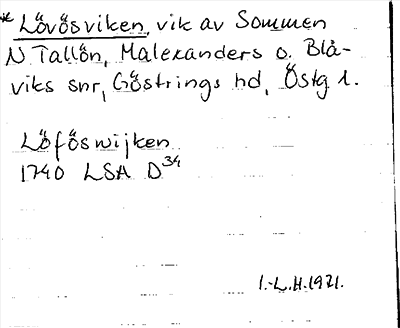 * Lövösviken, vik av Sommen
N Tallön, Malexanders o. Blå-
viks snr, Göstrings hd, Östg l.
Löföswijken
1740 LSA D34
I.-L.H. 1971.